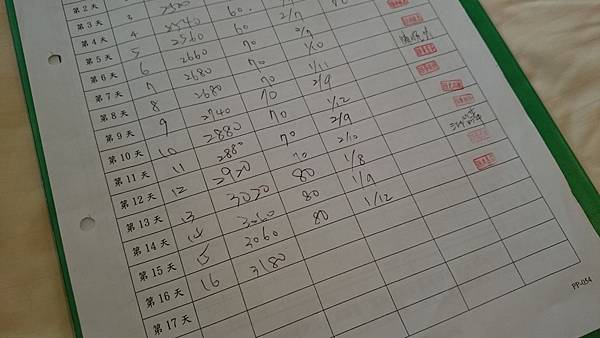 第2天
第3天 3
第4天 4 2540 60
第5天 5 2560 60 2/7
第6天 6 2660 70 2/9
第7天 7 2680 70 1/10
第8天 8 2680 70 1/11
第9天 9 2740 70 2/9
第10天 10 2880 70 1/12
第11天 11 2880 70 2/9
第12天 12 2920 70 2/10
第13天 13 3020 80 1/8
第14天 14 3060 80 1/9
第15天 15 3060 80 1/12
第16天 16 3180
第17天
PP-054